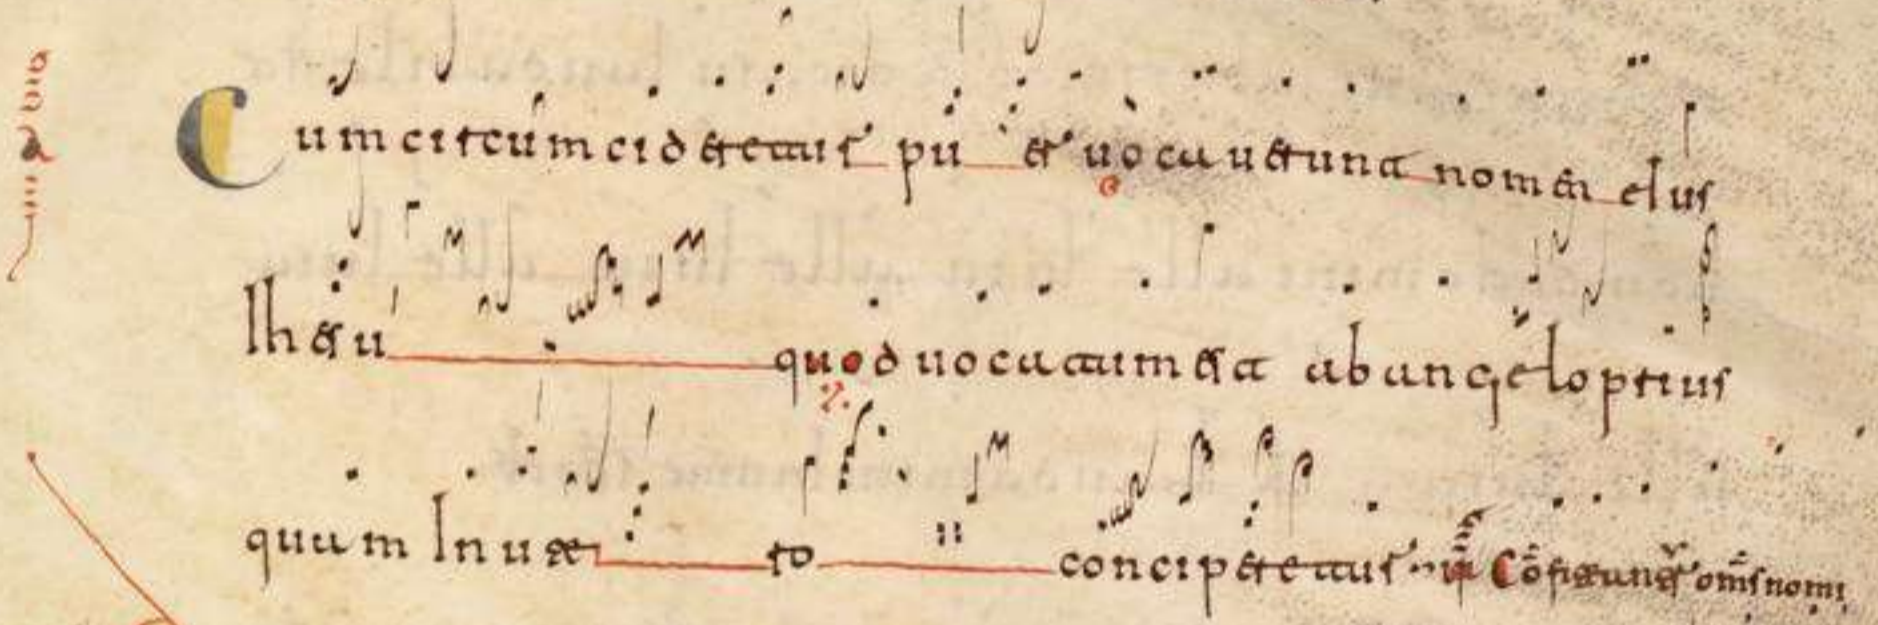 Cum circumcideretur pu er uocauerunt nomen eius
Ihesu quod uocatum est ab angelo prius
quam In utero conciperetur Confiteantur omnes nomi